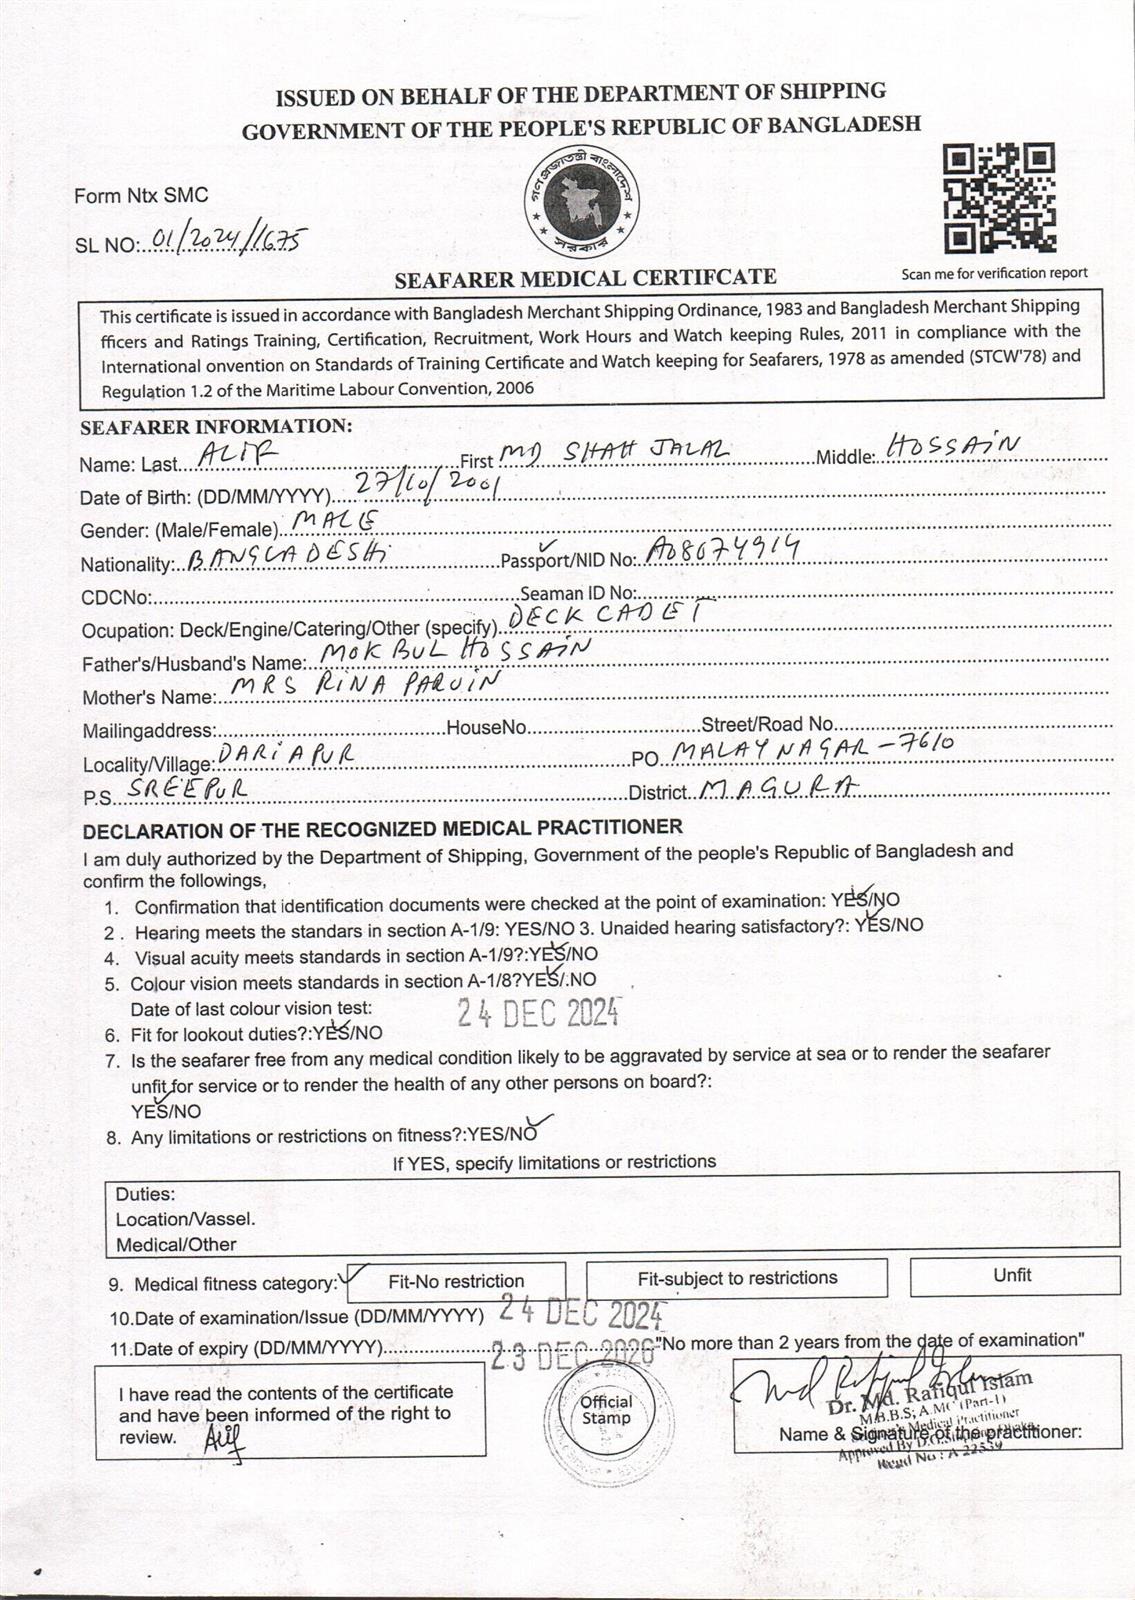 ISSUED ON BEHALF OF THE DEPARTMENT OF SHIPPING
GOVERNMENT OF THE PEOPLE'S REPUBLIC OF BANGLADESH
গণপ্রজাতন্ত্রী বাংলাদেশ
সরকার
Form Ntx SMC
SL NO:..01/2024/1675
Scan me for verification report
SEAFARER MEDICAL CERTIFCATE
This certificate is issued in accordance with Bangladesh Merchant Shipping Ordinance, 1983 and Bangladesh Merchant Shipping
fficers and Ratings Training, Certification, Recruitment, Work Hours and Watch keeping Rules, 2011 in compliance with the
International onvention on Standards of Training Certificate and Watch keeping for Seafarers, 1978 as amended (STCW'78) and
Regulation 1.2 of the Maritime Labour Convention, 2006
SEAFARER INFORMATION:
Name: Last... ALIF First MD SHAH JALAL Middle: HOSSAIN
Date of Birth: (DD/MM/YYYY) 27/10/2001
Gender: (Male/Female) MALE
Nationality: BANGLADESHi Passport/NID No: A08074914
CDCNo: Seaman ID No:
Ocupation: Deck/Engine/Catering/Other (specify) DECK CADET
Father's/Husband's Name: MOKBUL HOSSAIN
Mother's Name: MRS RINA PARVIN
Mailingaddress: HouseNo Street/Road No
Locality/Village: DARIAPUR PO MALAYNAGAR-7610
P.S. SREEPUR District MAGURA
DECLARATION OF THE RECOGNIZED MEDICAL PRACTITIONER
I am duly authorized by the Department of Shipping, Government of the people's Republic of Bangladesh and
confirm the followings,
1. Confirmation that identification documents were checked at the point of examination: YES/NO
2 . Hearing meets the standars in section A-1/9: YES/NO 3. Unaided hearing satisfactory?: YES/NO
4. Visual acuity meets standards in section A-1/9?:YES/NO
5. Colour vision meets standards in section A-1/8?YES/.NO
Date of last colour vision test: 24 DEC 2024
6. Fit for lookout duties?:YES/NO
7. Is the seafarer free from any medical condition likely to be aggravated by service at sea or to render the seafarer
unfit for service or to render the health of any other persons on board?:
YES/NO
8. Any limitations or restrictions on fitness?:YES/NO
If YES, specify limitations or restrictions
Duties:
Location/Vassel.
Medical/Other
9. Medical fitness category: Fit-No restriction Fit-subject to restrictions Unfit
10.Date of examination/Issue (DD/MM/YYYY) 24 DEC 2024
11.Date of expiry (DD/MM/YYYY) 23 DEC 2026 "No more than 2 years from the date of examination"
I have read the contents of the certificate
and have been informed of the right to
review. Alif
Official
Stamp
Md Rafiqul Islam
Dr. Md. Rafiqul Islam
M.B.B.S, A.M.C (Part-1)
Medical Practitioner
Name & Signature of the practitioner:
Approved By D.G. Shipping Dhaka
Regd No : A 22539